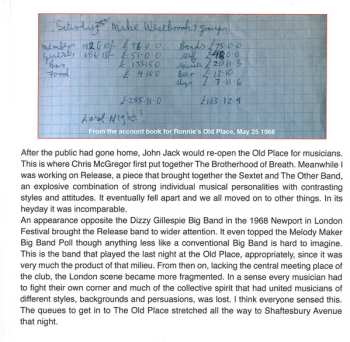 Saturday Mike Westbrook's group
Members
Guests
Bar
Food
Bands
Staff
Bar
Last Night
From the account book for Ronnie's Old Place, May 25 1968
After the public had gone home, John Jack would re-open the Old Place for musicians.
This is where Chris McGregor first put together The Brotherhood of Breath. Meanwhile I
was working on Release, a piece that brought together the Sextet and The Other Band,
an explosive combination of strong individual musical personalities with contrasting
styles and attitudes. It eventually fell apart and we all moved on to other things. In its
heyday it was incomparable.
An appearance opposite the Dizzy Gillespie Big Band in the 1968 Newport in London
Festival brought the Release band to wider attention. It even topped the Melody Maker
Big Band Poll though anything less like a conventional Big Band is hard to imagine.
This is the band that played the last night at the Old Place, appropriately, since it was
very much the product of that milieu. From then on, lacking the central meeting place of
the club, the London scene became more fragmented. In a sense every musician had
to fight their own corner and much of the collective spirit that had united musicians of
different styles, backgrounds and persuasions, was lost. I think everyone sensed this.
The queues to get in to The Old Place stretched all the way to Shaftesbury Avenue
that night.